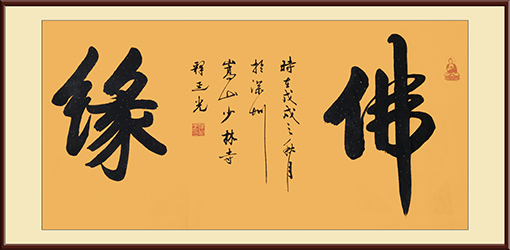 佛
時在戊戌之秋月
於深圳
嵩山少林寺
缘